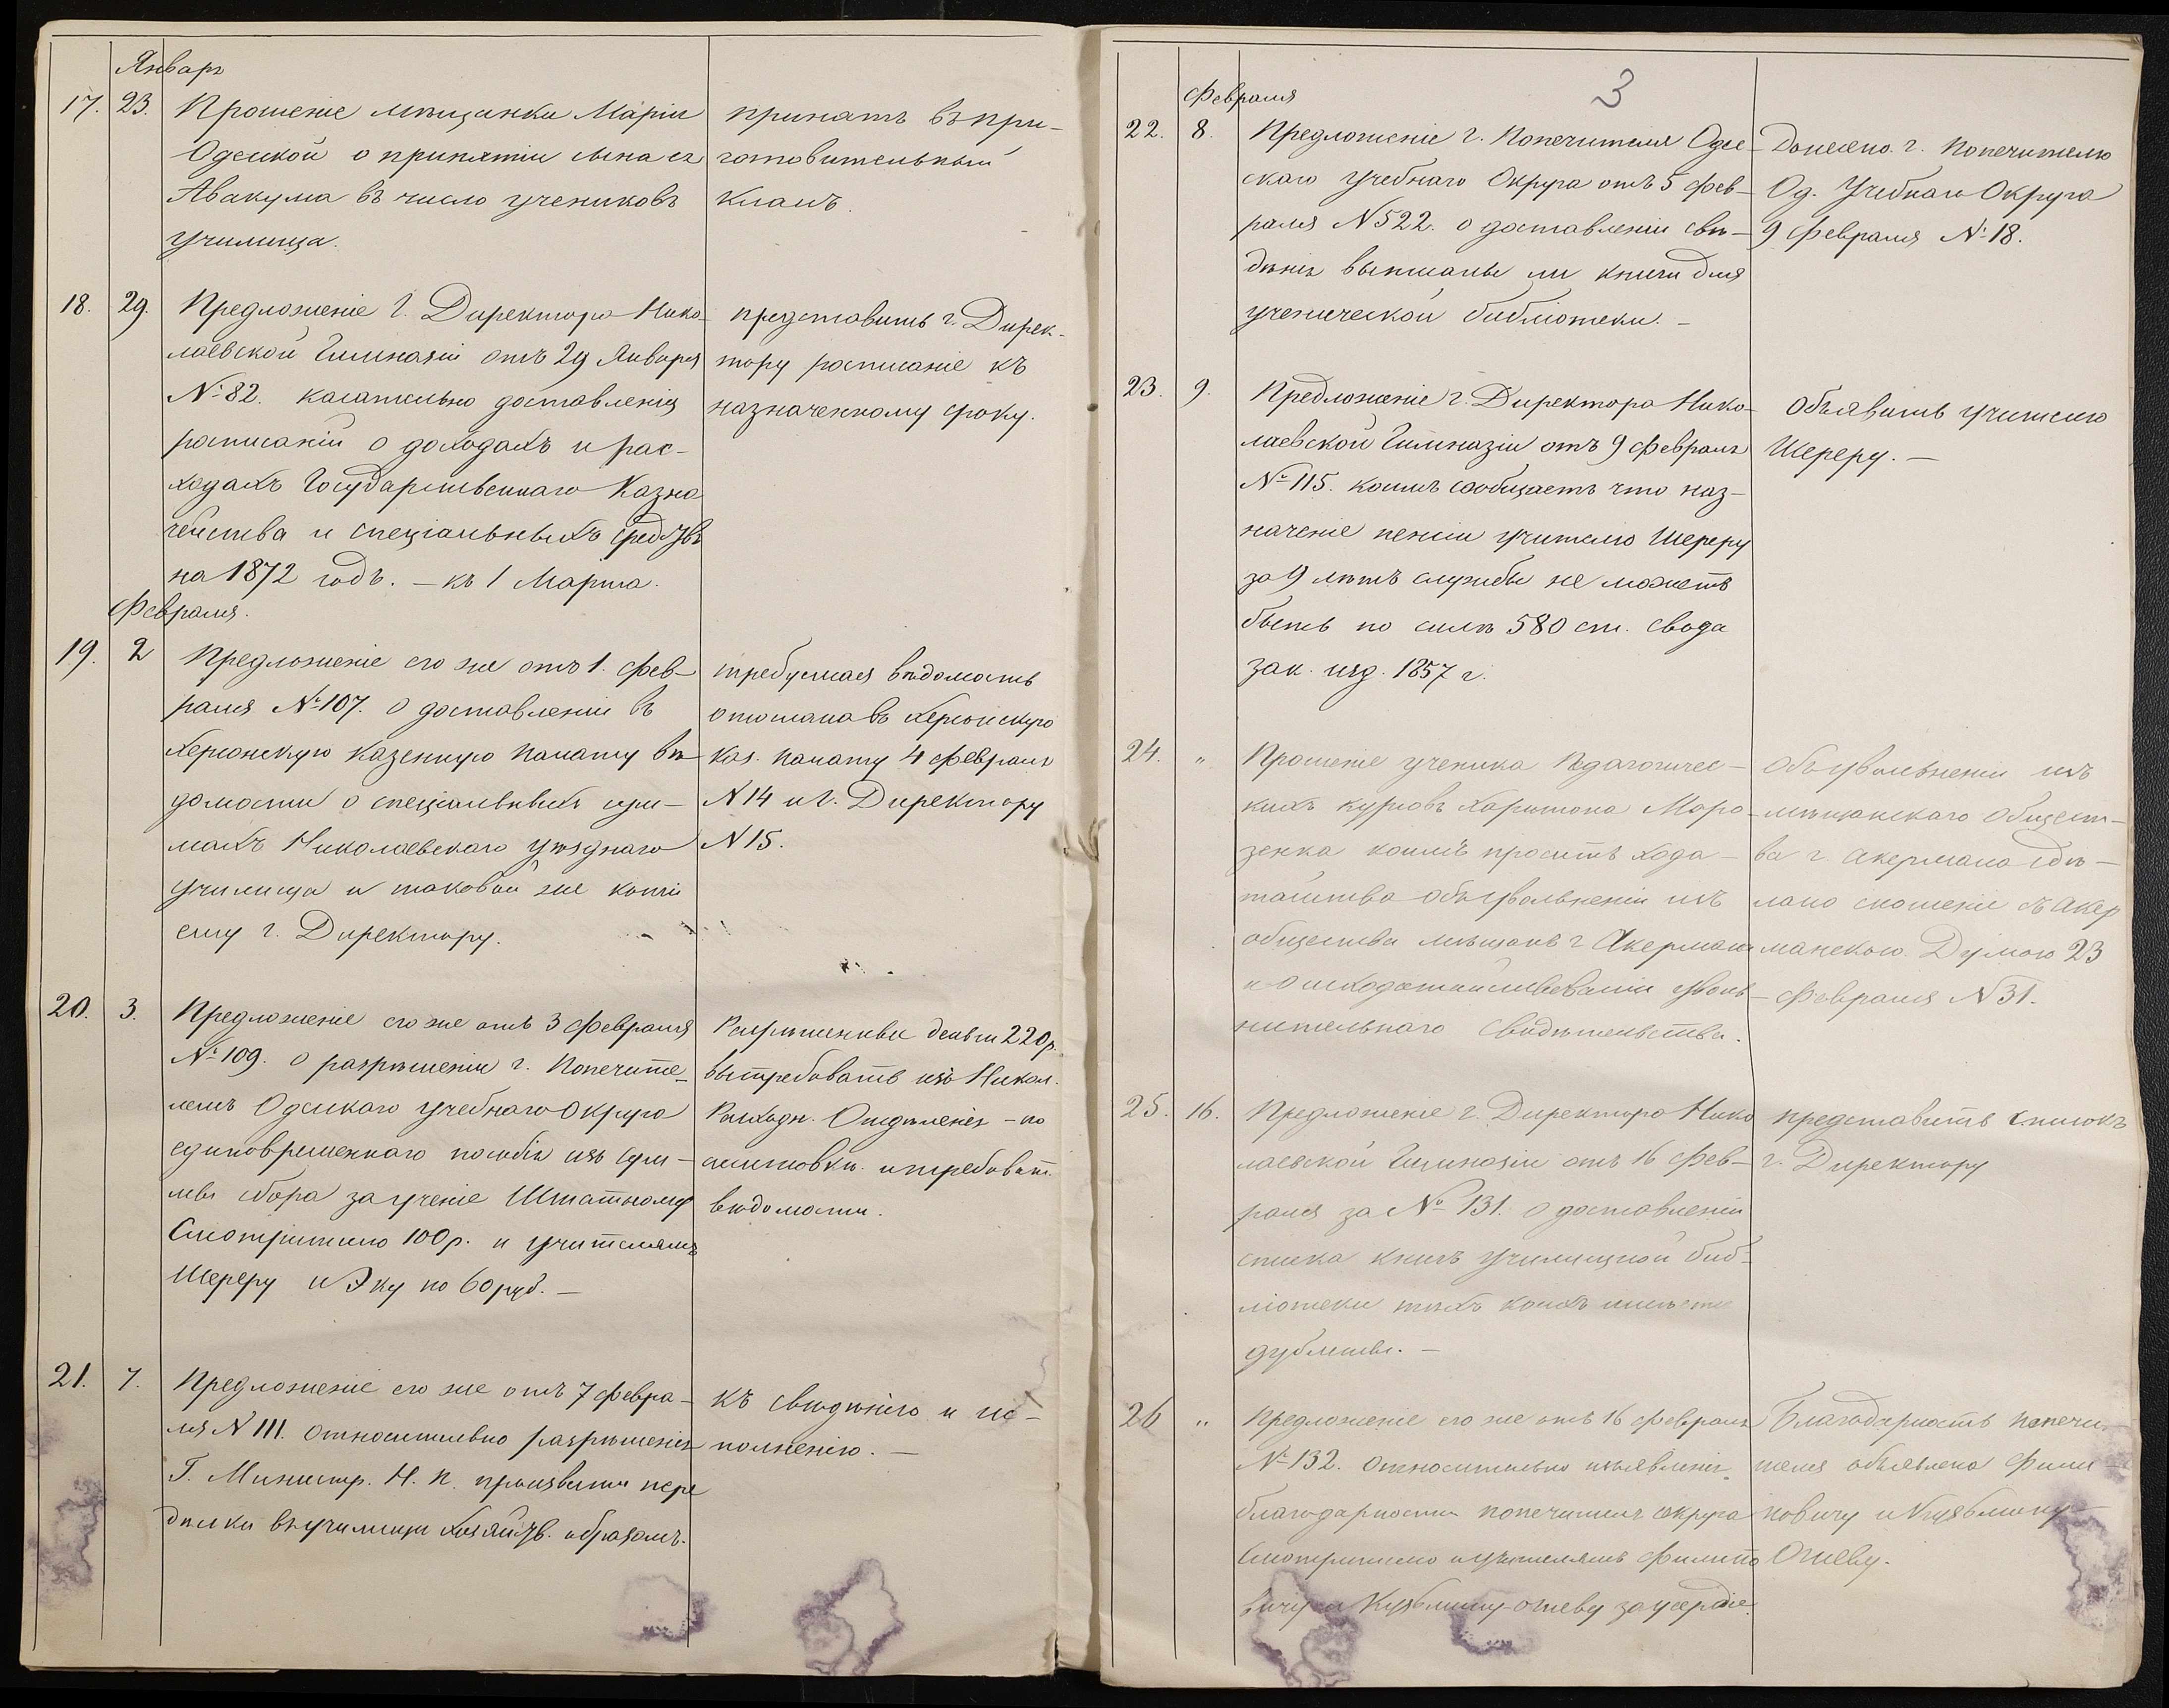 Январь
17. 23. Прошеніе мѣщанки Маріи
Одесской о принятіи сына ея
Авакума въ число учениковъ
училища.
принять въ при-
готовительный
классъ.
18. 29. Предложеніе Г. Директора Нико-
лаевской Гимназіи отъ 29 Января
№ 82. касательно доставленія
росписаній о доходахъ и рас-
ходахъ Государственнаго Казна
чейства и спеціальныхъ средствъ
на 1872 годъ. – къ 1 Марта.
представить г. Дирек-
тору росписаніе къ
назначенному сроку.
Февраля.
19. 2 Предложеніе его же отъ 1. Фев-
раля № 107. о доставленіи въ
Херсонскую Казенную Палату вѣ-
домости о спеціальныхъ сум-
махъ Николаевскаго уѣзднаго
училища и таковой же копіи
ему г. Директору.
требуемая вѣдомость
отослана въ Херсонскую
Каз. Палату 4 Февраля
N 14 и Г. Директору
N 15.
20. 3. Предложеніе его же отъ 3 Февраля
№ 109. о разрѣшеніи г. Попечите-
лемъ Одесскаго учебнаго Округа
единовременнаго пособія изъ сум-
мы сбора за ученіе Штатному
Смотрителю 100 р. и учителямъ
Шереру и Эку по 60 руб. –
Разрѣшенные деньги 220 р.
вытребовать изъ Никол.
Расходн. Отдѣленія – по
ассигновкѣ. и требоват.
вѣдомости.
21. 7. Предложеніе его же отъ 7 Февра-
ля N 111. относительно разрѣшенія
Г. Министр. Н. П. произвести пере
дѣлки въ училищи хозяйств. образомъ.
къ свѣдѣнію и ис-
полненію. –
3
Февраля
22. 8. Предложеніе г. Попечителя Одес-
скаго учебнаго Округа отъ 5 Фев-
раля N 522. о доставленіи свѣ-
дѣнія выписаны ли книги для
ученической библіотеки. –
Донесено г. Попечителю
Од. Учебнаго Округа
9 Февраля № 18.
23. 9. Предложеніе г. Директора Нико-
лаевской Гимназіи отъ 9 Февраля
№ 115. коимъ сообщаетъ что наз-
наченіе пенсіи учителю Шереру
за 9 лѣтъ службы не можетъ
быть по силѣ 580 ст. свода
зак. изд. 1857 г.
Объявить учителю
Шереру. –
24. " Прошеніе ученика Педагогичес-
кихъ курсовъ Харитона Моро-
зенка коимъ проситъ хода-
тайства объ увольненіи изъ
общества мѣщанъ г Акермана
и о исходатайствованіи уволь-
нительнаго свидѣтельства.
Объ увольненіи изъ
мѣщанскаго общест-
ва г. Акермана сдѣ-
лано сношеніе съ Акер
манскою Думою 23
Февраля N 31.
25. 16. Предложеніе г. Директора Нико
лаевской Гимназіи отъ 16 Фев-
раля за № 131. о доставленіи
списка книгъ училищной биб-
ліотеки тѣхъ коихъ имѣются
дублеты. –
представить списокъ
г. Директору
26 " Предложеніе его же отъ 16 Февраля
№ 132. Относительно изъявленія
благодарности попечителя округа
Смотрителю и учителямъ Филипо
вичу и Кузьмину-Огневу за усердіе.
Благодарность попечи-
теля объявлена Фили-
повичу и Кузьмину-
Огневу.